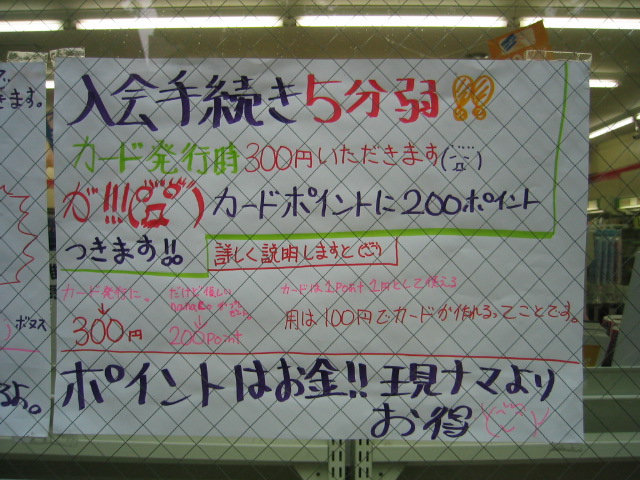 入会手続き5分弱!!
カード発行時300円いただきます
が!!! カードポイントに200ポイント
つきます!!
詳しく説明しますと
カード発行に、
300円
だけど嬉しい
nanacoの
200point
カードは1point 1円として使える
用は100円でカードが作れるってことです。
ポイントはお金!! 現ナマより
お得
きます。
ボーナス